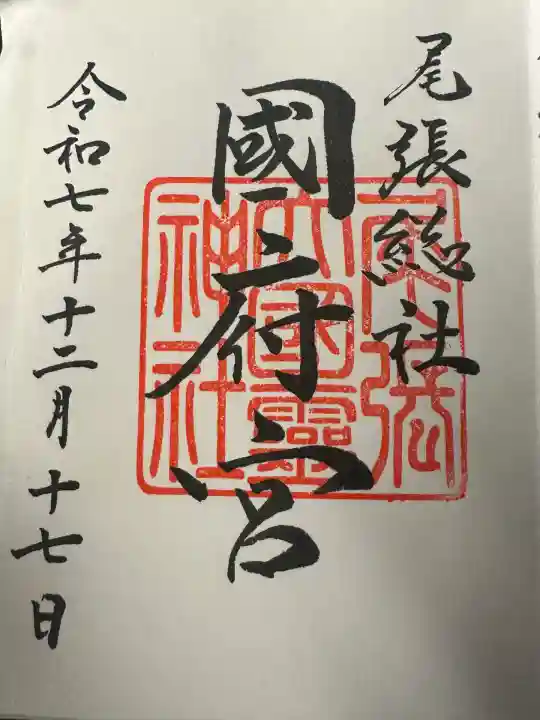 尾張総社
國府宮
尾張
大國靈
神社
令和七年十二月十七日